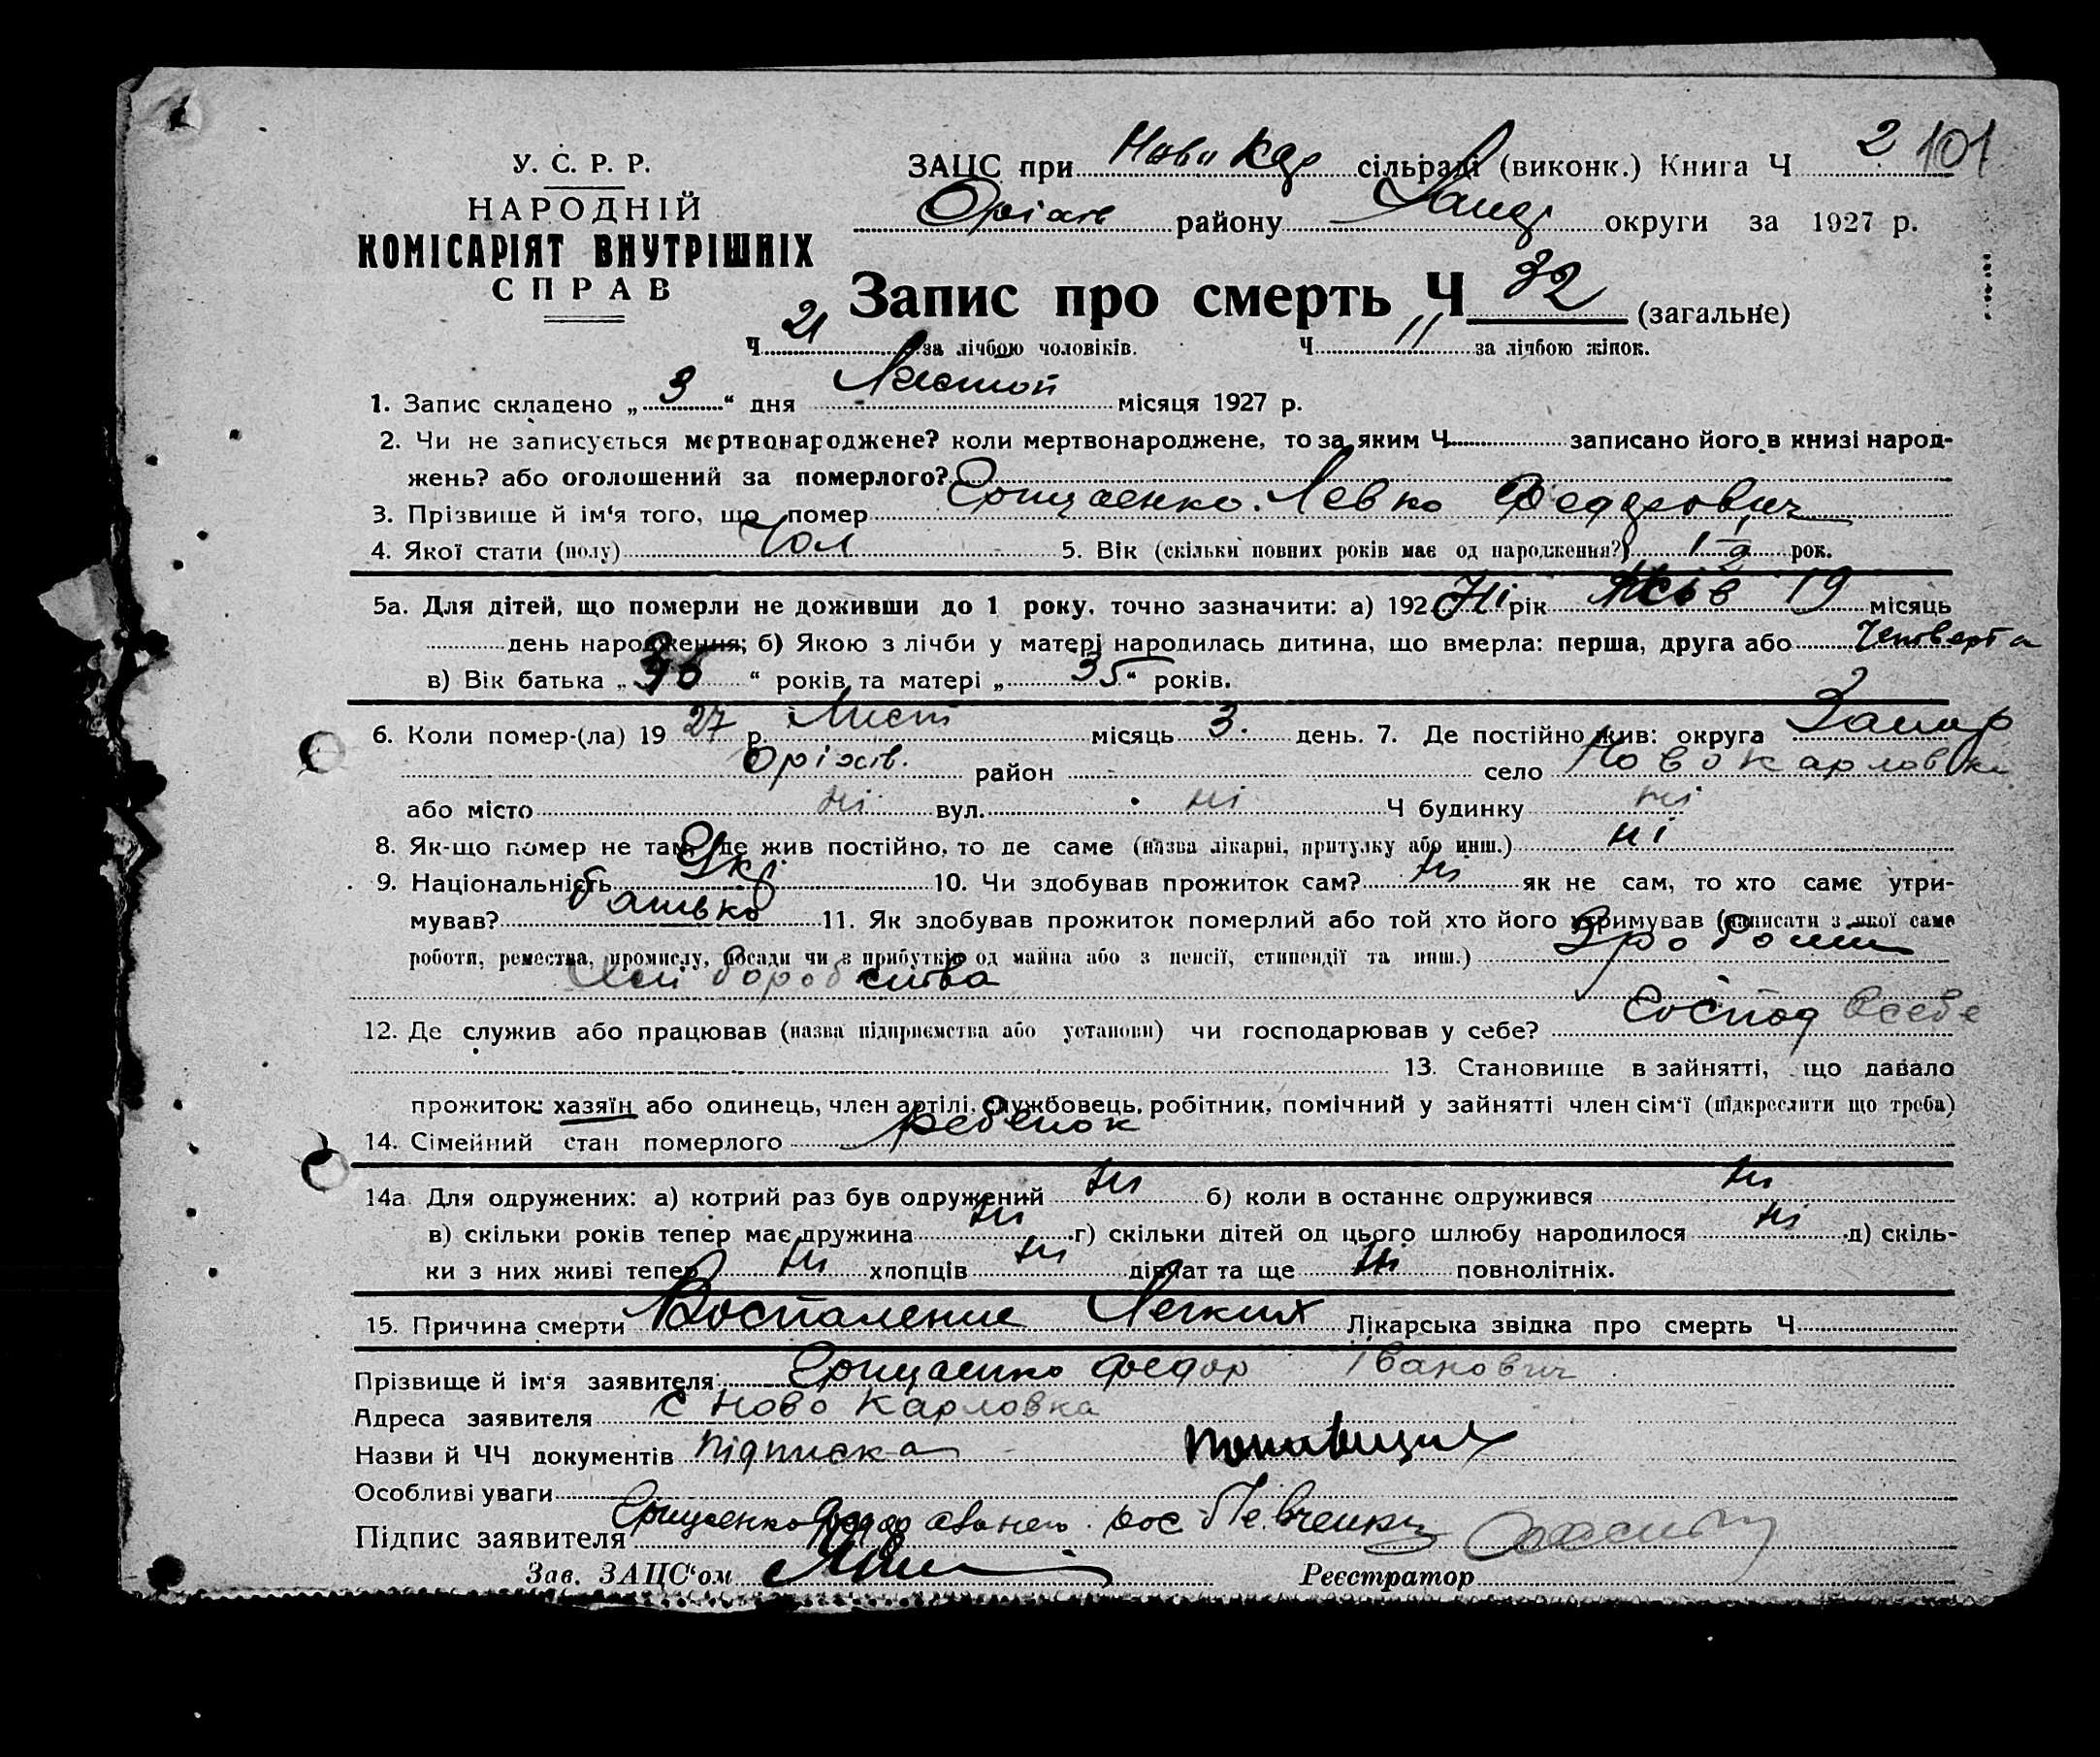 2 101
У. С. Р. Р.
НАРОДНІЙ
КОМІСАРІЯТ ВНУТРІШНІХ
СПРАВ
ЗАЦС при Ново Кар сільраді (виконк.) Книга Ч
Оріхів району округи за 1927 р.
Запис про смерть Ч 32 (загальне)
Ч 21 за лічбою чоловіків. Ч 11 за лічбою жінок.
1. Запис складено „ 3 “ дня Листоп місяця 1927 р.
2. Чи не записується мертвонароджене? коли мертвонароджене, то за яким Ч записано його в книзі народ-
жень? або оголошений за померлого?
3. Прізвище й ім‘я того, що помер Грищаенко Левко Федорович
4. Якої стати (полу) Чол 5. Вік (скільки повних років має од народження?) рок.
5а. Для дітей, що померли не доживши до 1 року, точно зазначити: а) 192 Ні рік 19 місяць
день народження; б) Якою з лічби у матері народилась дитина, що вмерла: перша, друга або Четверта
в) Вік батька „ 36 “ років та матері „ 35 “ років.
6. Коли помер-(ла) 19 27 р. Лист місяць 3. день. 7. Де постійно жив: округа Запор
Оріхів. район село Новокарловка
або місто ні вул. ні Ч будинку ні
8. Як-що помер не там, де жив постійно, то де саме (назва лікарні, притулку або инш.) ні
9. Національність Укр 10. Чи здобував прожиток сам? ні як не сам, то хто саме утри-
мував? батько 11. Як здобував прожиток померлий або той хто його утримував (написати з якої саме
роботи, ремества, промислу, посади чи з прибутків од майна або з пенсії, стипендії та инш.) З роботи
хліборобства
12. Де служив або працював (назва підприємства або установи) чи господарював у себе? Господ всебе
13. Становище в зайнятті, що давало
прожиток: хазяїн або одинець, член артілі, службовець, робітник, помічний у зайнятті член сім‘ї (підкреслити що треба)
14. Сімейний стан померлого ребенок
14а. Для одружених: а) котрий раз був одружений ні б) коли в останнє одружився ні
в) скільки років тепер має дружина ні г) скільки дітей од цього шлюбу народилося ні д) скіль-
ки з них живі тепер ні хлопців ні дівчат та ще ні повнолітніх.
15. Причина смерти Воспаление Легких Лікарська звідка про смерть Ч
Прізвище й ім‘я заявителя: Грищаенко Федор Іванович
Адреса заявителя с Ново Карловка
Назви й ЧЧ документів підписка
Особливі уваги
Підпис заявителя Грищаенко Федор
Зав. ЗАЦС‘ом Реєстратор